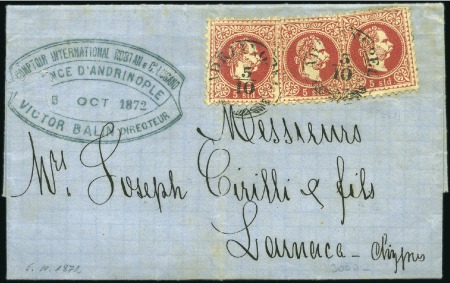 COMPTOIR INTERNATIONAL ROSTAN & Cie
AGENCE D'ANDRINOPLE
5 OCT 1872
VICTOR BALIN DIRECTEUR
5
10
5
10
5 sld
5 sld
5 sld
Messieurs
Mrs. Joseph Cirilli & fils
Larnaca - Chypre
5. 10. 1872